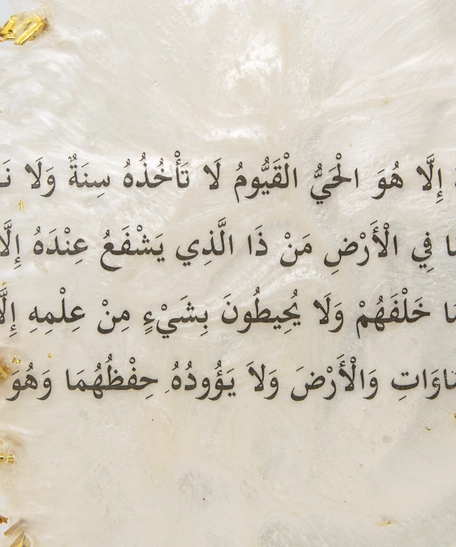 إِلَّا هُوَ الْحَيُّ الْقَيُّومُ لَا تَأْخُذُهُ سِنَةٌ وَلَا
فِي الْأَرْضِ مَنْ ذَا الَّذِي يَشْفَعُ عِنْدَهُ إِلَّا
خَلْفَهُمْ وَلَا يُحِيطُونَ بِشَيْءٍ مِنْ عِلْمِهِ إِلَّا
وَالْأَرْضَ وَلَا يَؤُودُهُ حِفْظُهُمَا وَهُوَ